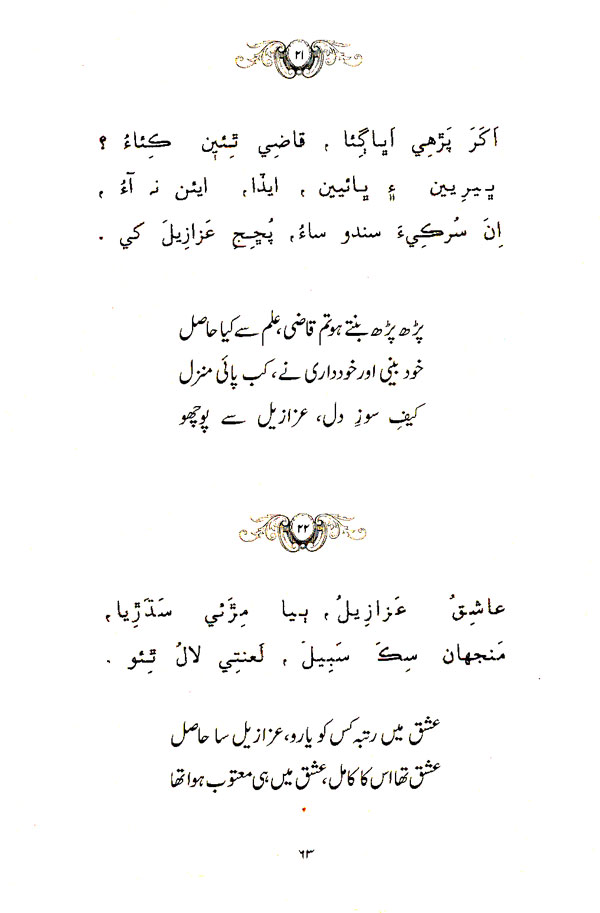 ۲۱
اَکَرَ پَڙهِي اَڀاڳِئا، قاضِي ٿِئين ڪِئاءُ ؟
ڀيرِيين ۽ ڀائيين، ايڏا، ايئن نہ آءُ،
اِنَ سُرڪِيءَ سندو ساءُ، پُڇِجِ عَزازِيلَ کي .
پڑھ پڑھ بنتے ہو تم قاضی، علم سے کیا حاصل
خود بینی اور خودداری نے، کب پائی منزل
کیفِ سوزِ دل، عزازیل سے پوچھو
۲۲
عاشِقُ عَزازِيلُ، ٻيا مِڙَئي سَڌَڙِيا،
مَنجهان سِڪَ سَبِيلَ، لَعنتِي لالُ ٿِئو .
عشق میں رتبہ کس کو یارو، عزازیل سا حاصل
عشق تھا اس کا کامل، عشق میں ہی معتوب ہوا تھا
۶۳